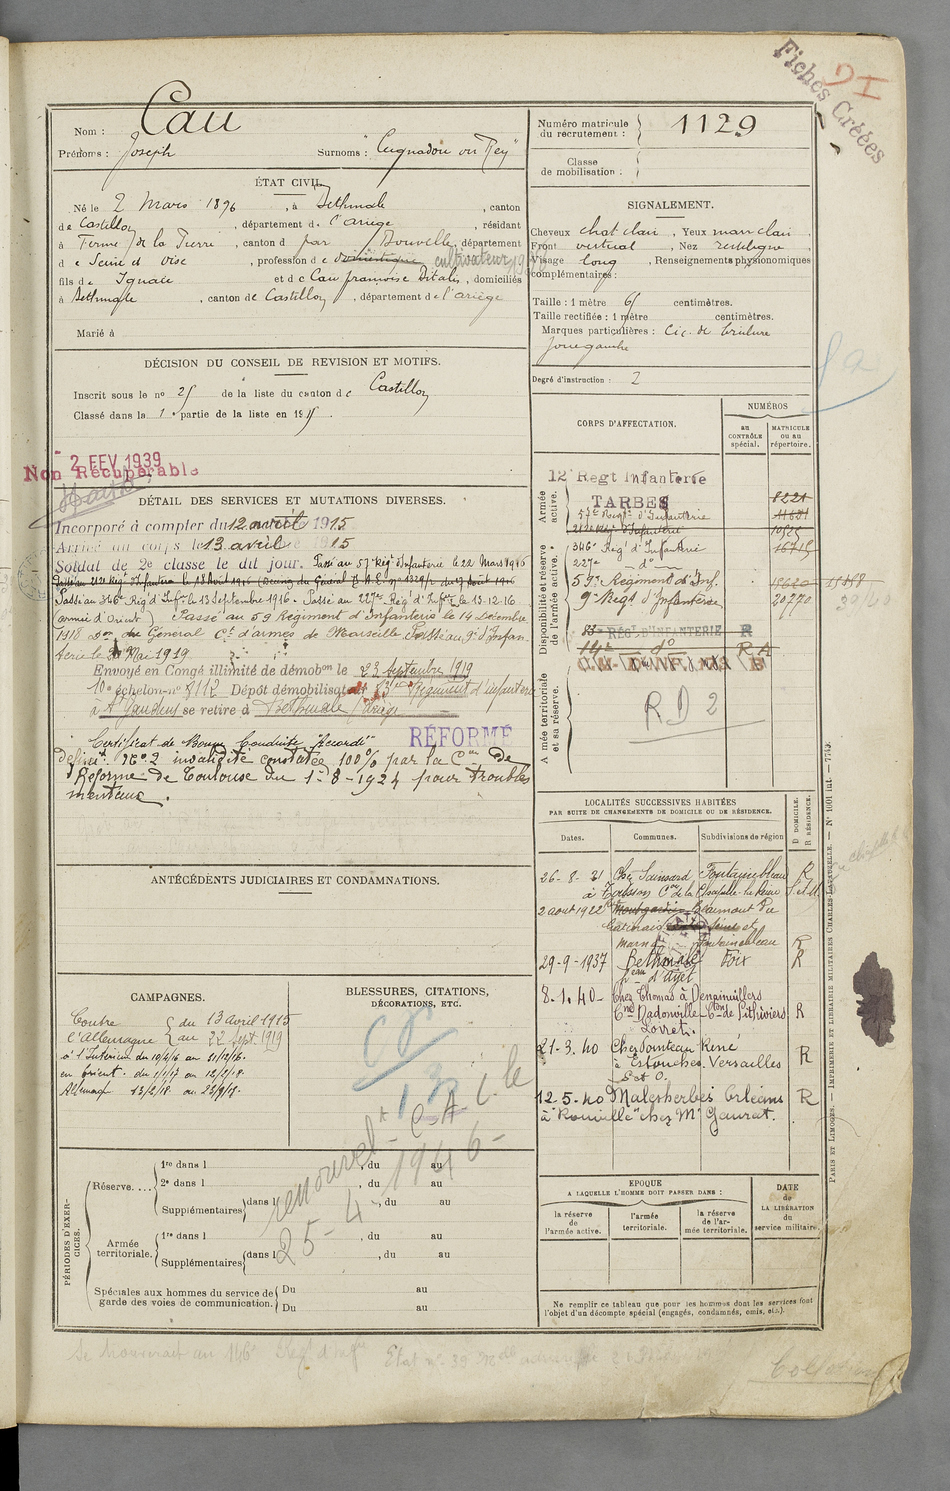 Fiches Créées
Nom : Cau
Prénoms : Joseph Surnoms : "Cugnadou ou Rey"
Numéro matricule du recrutement : 1129
Classe de mobilisation :
ÉTAT CIVIL
Né le 2 Mars 1896, à Bethmale, canton
de Castillon, département de l'Ariège, résidant
à Ferme de la Pierre, canton d par Bouville, département
d e Seine et Oise, profession de domestique cultivateur
fils de Ignace et de Cau françoise Vitalis, domiciliés
à Bethmale, canton de Castillon, département de l'ariège
Marié à
SIGNALEMENT.
Cheveux chat clair, Yeux marr clair,
Front vertical, Nez rectiligne
Visage long, Renseignements physionomiques
complémentaires :
Taille : 1 mètre 61 centimètres.
Taille rectifiée : 1 mètre centimètres.
Marques particulières : Cic. de brulure
joue gauche
Degré d'instruction : 2
DÉCISION DU CONSEIL DE REVISION ET MOTIFS.
Inscrit sous le no 25 de la liste du canton de Castillon
Classé dans la 1e partie de la liste en 1915
2 FEV 1939
Non Récupérable
DÉTAIL DES SERVICES ET MUTATIONS DIVERSES.
Incorporé à compter du 12 avril 1915
Arrivé au corps le 13 avril 1915
Soldat de 2e classe le dit jour. Passé au 57e Rég. d'Infanterie le 22 Mars 1916
Passé au 212e Rég. d'Infanterie le 18 Août 1916
Passé au 346e Rég. d'Infie le 13 Septembre 1916. Passé au 227e Rég. d'Infie le 13-12-16
(armée d'Orient) Passé au 59 Régiment d'Infanterie le 14 Décembre
1918 Don du Général Ct d'armes de Marseille Passé au 9e d'Infan-
terie le Mai 1919
Envoyé en Congé illimité de démobon le 23 Septembre 1919
10e échelon no 8112 Dépôt démobilisateur 83e Régiment d'infanterie
à St Gaudens se retire à Bethmale Ariège
Certificat de Bonne Conduite "Accordé"
RÉFORMÉ
définitt No 2 invalidité constatée 100% par la Con De
Réforme de Toulouse du 1-8-1924 pour troubles
mentaux.
CORPS D'AFFECTATION.
NUMÉROS
au CONTRÔLE spécial.
MATRICULE ou au répertoire.
Armée active.
12 Regt Infanterie
TARBES 8221
57e Regt d'Infanterie 11631
212e Regt d'Infanterie
Disponibilité et réserve de l'armée active.
346e Reg. d'Infanterie 16715
227e - do -
59e Régiment d'Inf. 15620
9e Regt d'Infanterie 20770
83e RÉGt D'INFANTERIE R
14e do R A
Armée territoriale et sa réserve.
R D 2
LOCALITÉS SUCCESSIVES HABITÉES
PAR SUITE DE CHANGEMENTS DE DOMICILE OU DE RÉSIDENCE.
Dates. Communes. Subdivisions de région
D DOMICILE. R RÉSIDENCE.
26-8-21 Chez Sainsard Fontainebleau R
à Tousson Con de la Chapelle-la-Reine S. et M.
2 aout 1922 Beaumont du
Gatinais Seine et
Marne fontainebleau R
29-9-1937 Bethmale Foix R
heau d'Ayet
8.1.40- Chez Thomas à Dengainvillers
Cne Dadonville - Con de Pithiviers R
Loiret.
21-3.40 Chez Pointeau René
à Estouches. Versailles R
S et O.
12.5.40 Malesherbes Orléans R
à "Rouville" chez Mr Gaurat.
ANTÉCÉDENTS JUDICIAIRES ET CONDAMNATIONS.
CAMPAGNES.
Contre l'Allemagne du 13 avril 1915 au 22 Sept. 1919
à l'Intérieur du 10/4/16 au 31/12/16.
en Orient. du 1/1/17 au 12/2/18.
Allemag 13/2/18. au 22/9/19.
BLESSURES, CITATIONS,
DÉCORATIONS, ETC.
25-4-1946-
PÉRIODES D'EXERCICES.
Réserve....
1re dans l , du au
2e dans l , du au
Supplémentaires dans l , du au
Armée territoriale.
1re dans l , du au
Supplémentaires dans l , du au
Spéciales aux hommes du service de garde des voies de communication.
Du au
Du au
EPOQUE
A LAQUELLE L'HOMME DOIT PASSER DANS :
la réserve de l'armée active.
l'armée territoriale.
la réserve de l'armée territoriale.
DATE de LA LIBÉRATION du service militaire.
Ne remplir ce tableau que pour les hommes dont les services font
l'objet d'un décompte spécial (engagés, condamnés, omis, etc.).
PARIS ET LIMOGES. — IMPRIMERIE ET LIBRAIRIE MILITAIRES CHARLES-LAVAUZELLE. — No 1001 int. — 7743.